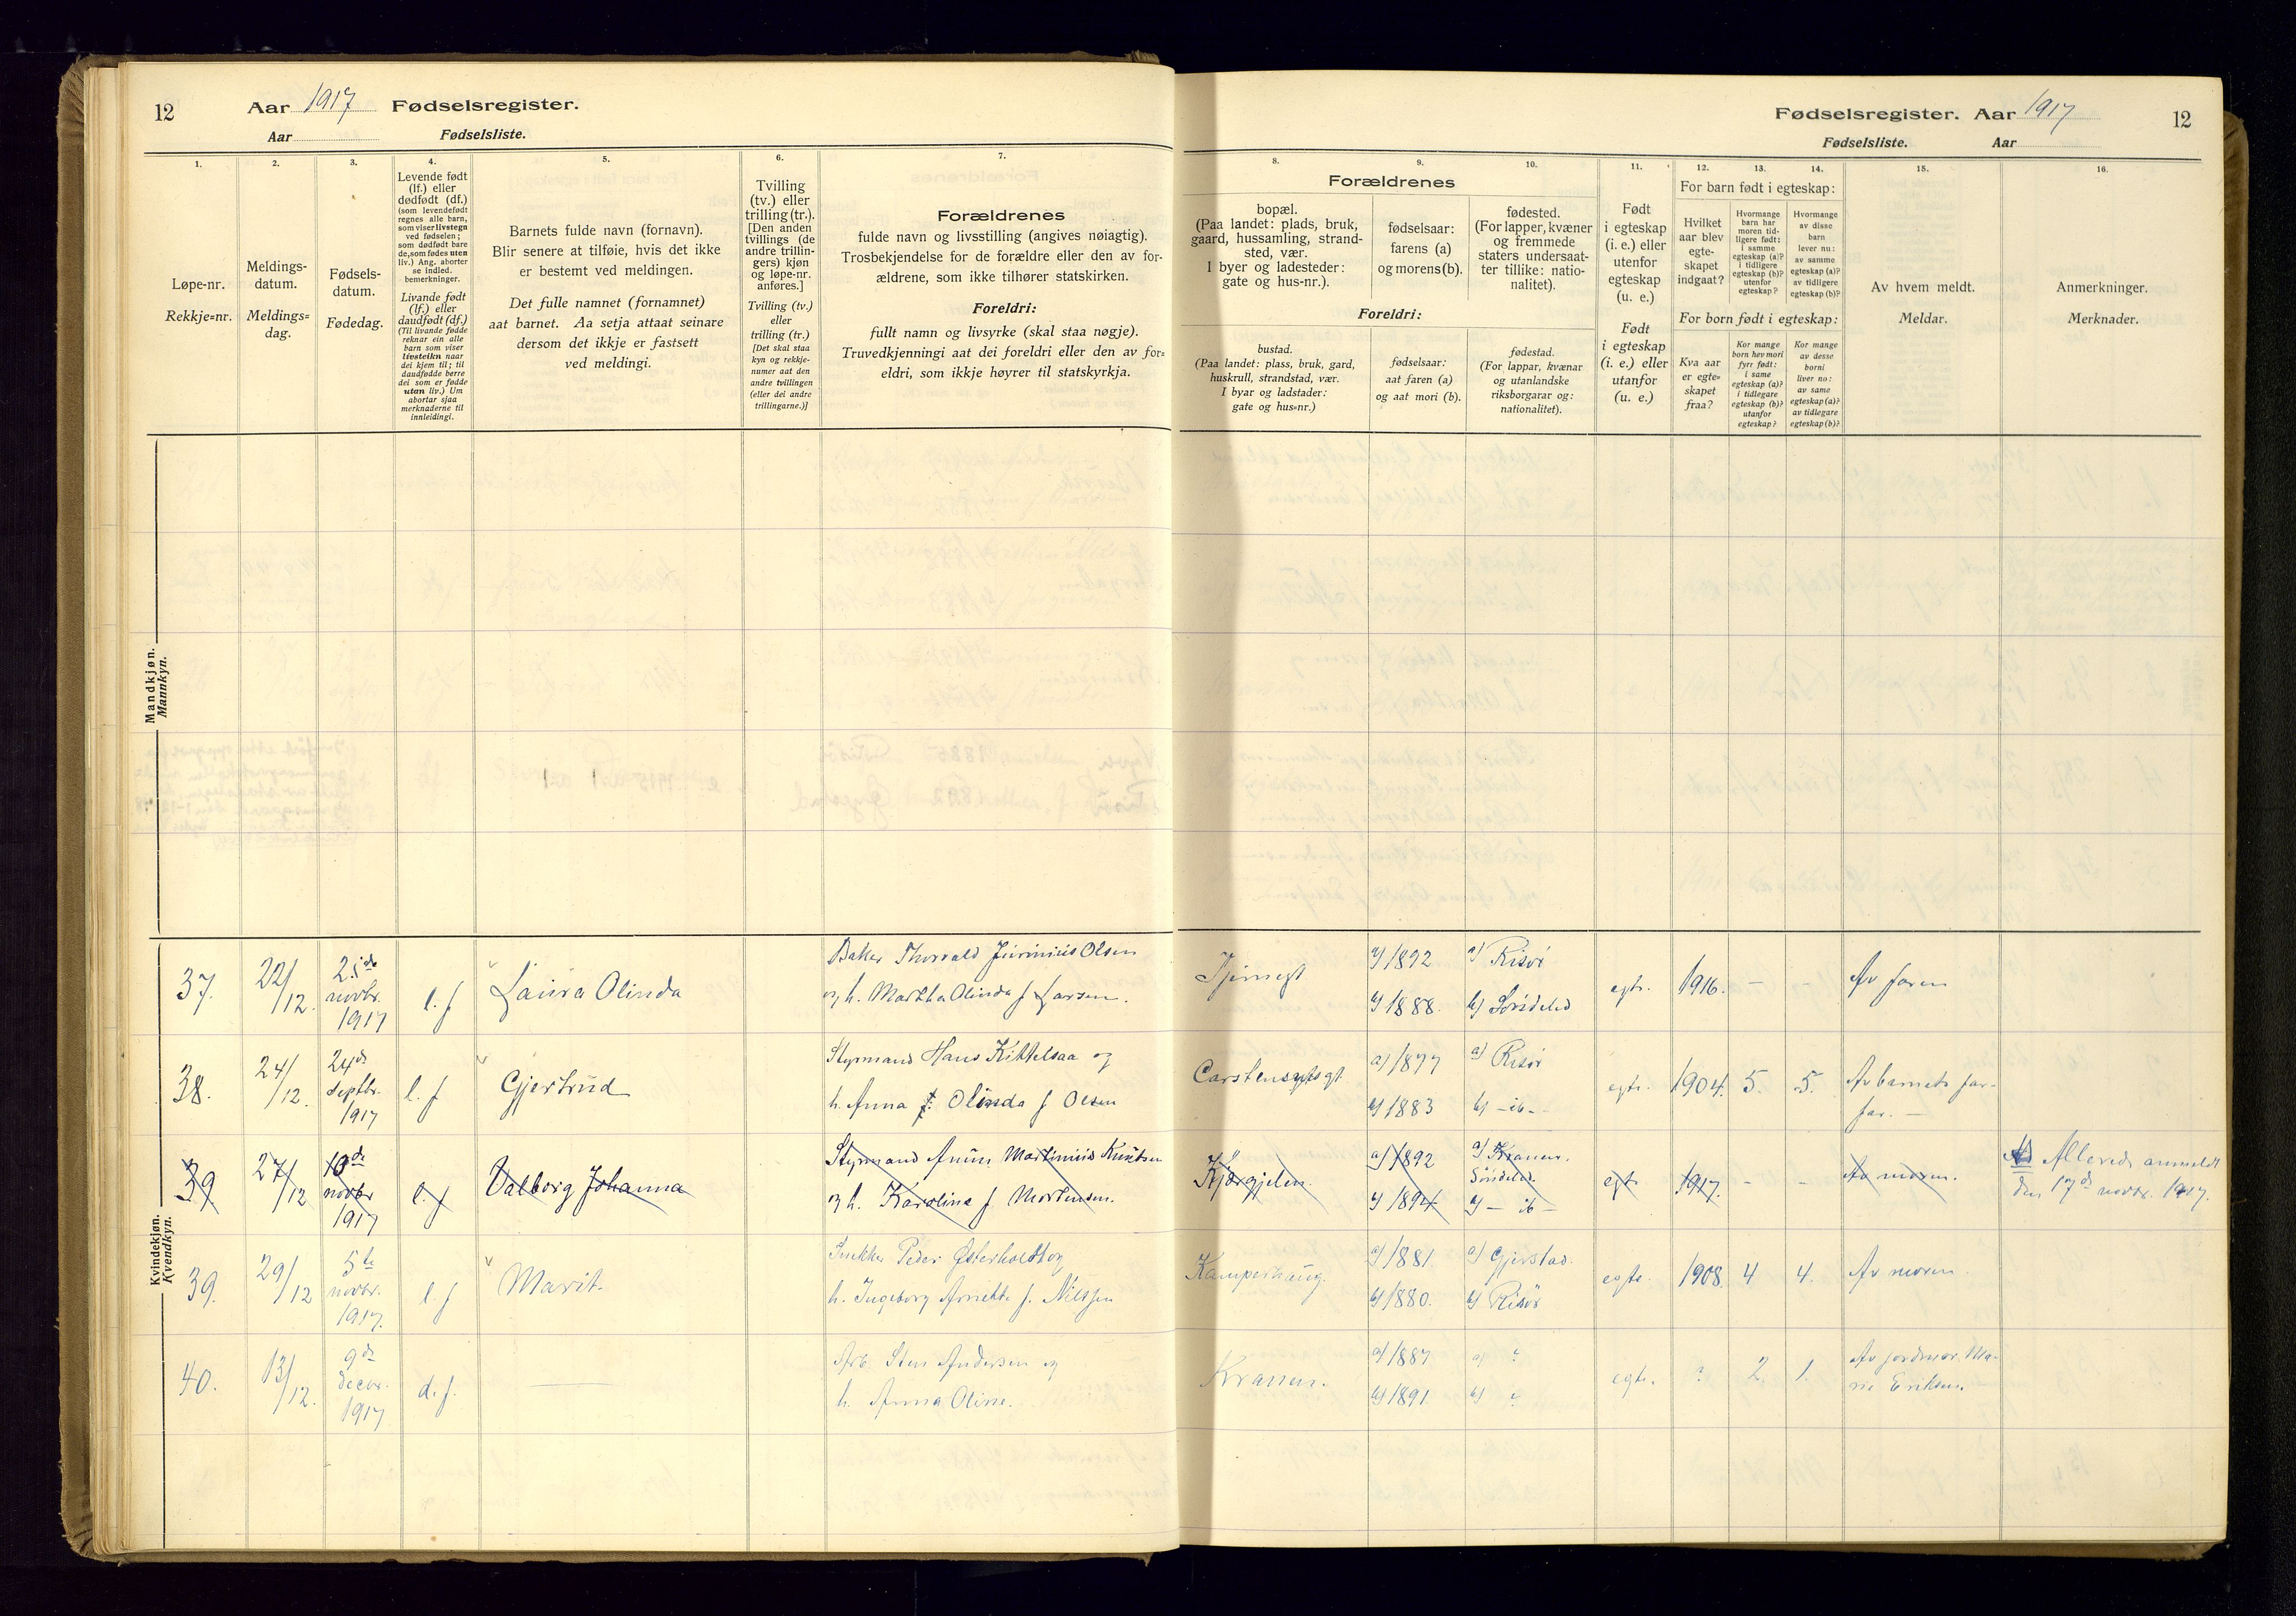 12 Aar 1917 Fødselsregister.
Aar Fødselsliste.
1.
Løpe-nr.
Rekkje=nr.
2.
Meldings-
datum.
Meldings=
dag.
3.
Fødsels-
datum.
Fødedag.
4.
Levende født
(lf.) eller
dødfødt (df.)
(som levendefødt
regnes alle barn,
som viser livstegn
ved fødselen;
som dødfødt bare
de, som fødes uten
liv.) Ang. aborter
se indled.
bemerkninger.
Livande født
(lf.) eller
daudfødt (df.)
(Til livande fødde
reknar ein alle
barn som viser
livsteikn naar
dei kjem til; til
daudfødde berre
dei som er fødde
utan liv.) Um
abortar sjaa
merknaderne til
innleidingi.
5.
Barnets fulde navn (fornavn).
Blir senere at tilføie, hvis det ikke
er bestemt ved meldingen.
Det fulle namnet (fornamnet)
aat barnet. Aa setja attaat seinare
dersom det ikkje er fastsett
ved meldingi.
6.
Tvilling
(tv.) eller
trilling (tr.).
[Den anden
tvillings (de
andre trillin-
gers) kjøn
og løpe-nr.
anføres.]
Tvilling (tv.)
eller
trilling (tr.)
[Det skal staa
kyn og rekkje-
numer aat den
andre tvillingen
(eller dei andre
trillingarne.)]
7.
Forældrenes
fulde navn og livsstilling (angives nøiagtig).
Trosbekjendelse for de forældre eller den av for-
ældrene, som ikke tilhører statskirken.
Foreldri:
fullt namn og livsyrke (skal staa nøgje).
Truvedkjenningi aat dei foreldri eller den av for=
eldri, som ikkje høyrer til statskyrkja.
Mandkjøn.
Mannkyn.
Kvindekjøn.
Kvendkyn.
Fødselsregister. Aar 1917 12
Fødselsliste. Aar
8.
9.
10.
Forældrenes
bopæl.
(Paa landet: plads, bruk,
gaard, hussamling, strand-
sted, vær.
I byer og ladesteder:
gate og hus-nr.).
fødselsaar:
farens (a)
og morens (b).
fødested.
(For lapper, kvæner
og fremmede
staters undersaat-
ter tillike: natio-
nalitet).
Foreldri:
bustad.
(Paa landet: plass, bruk, gard,
huskrull, strandstad, vær.
I byar og ladstader:
gate og hus=nr.)
fødselsaar:
aat faren (a)
og aat mori (b).
fødestad.
(For lappar, kvænar
og utanlandske
riksborgarar og:
nationalitet).
11.
Født
i egteskap
(i. e.) eller
utenfor
egteskap
(u. e.)
Født
i egteskap
(i. e.) eller
utanfor
(u. e.)
12.
13.
14.
For barn født i egteskap:
Hvilket
aar blev
egte-
skapet
indgaat?
Hvormange
barn har
moren tid-
ligere født:
i samme
egteskap (a)?
i tidligere
egteskap (b)?
utenfor
egteskap?
Hvormange
av disse
barn
lever nu:
av samme
egteskap (a)?
av tidligere
egteskap (b)?
For born født i egteskap:
Kva aar
er egte=
skapet
fraa?
Kor mange
born hev mori
fyrr født:
i same
egteskap (a)?
i tidlegare
egteskap (b)?
utanfor
egteskap?
Kor mange
av desse
borni
liver no:
av same
egteskap (a)?
av tidlegare
egteskap (b)?
15.
Av hvem meldt.
Meldar.
16.
Anmerkninger.
Merknader.
37. 22/12. novbr. 1917 l. f Laura Olinda
Baker Thorvald Olsen
og h. Martha Olinda f Larsen.
Tjernegt a) 1892 a) Risør
b) 1888. b) Søndeled
egtr. 1916. - - Av faren
38. 24/12. 24de septbr. 1917 l. f Gjertrud
Styrmand Hans Kittelsaa og
h. Anna Olinda f Olsen
a) 1877 a) Risør
b) 1883 b) - ib -
egtr. 1904. 5. 5. Av barnets far-
far. -
39 27/12 10de novbr 1917 l. f Valborg Johanna
Styrmand Martinius Knutsen
og h. Karolina f Mortensen.
Kjærgjelen. a) 1892 a) Kranen.
Søndeled.
b) 1894 b) - ib -
egt. 1917. - - Av moren.
Allerede anmeldt
den 17de novbr. 1917.
39. 29/12 5te novbr. 1917. l. f Marit.
Peder Østerholdt og
h. Ingeborg f. Nilssen
Kamperhaug. a) 1881. a) Gjerstad.
b) 1880. b) Risør
egte. 1908. 4 4. Av moren
40. 13/12. 9de decbr. 1917 d. f.
Arb. Sten Andersen og
h. Anna Oline.
Kranen. a) 1887 a) ?
b) 1891. b) ?
egte. ? 2. 1. Av jordmor Ma-
rie Eriksen.